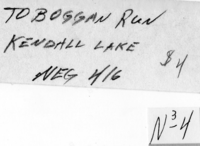 TOBOGGAN RUN
KENDALL LAKE
$4
NEG 416
N3-4